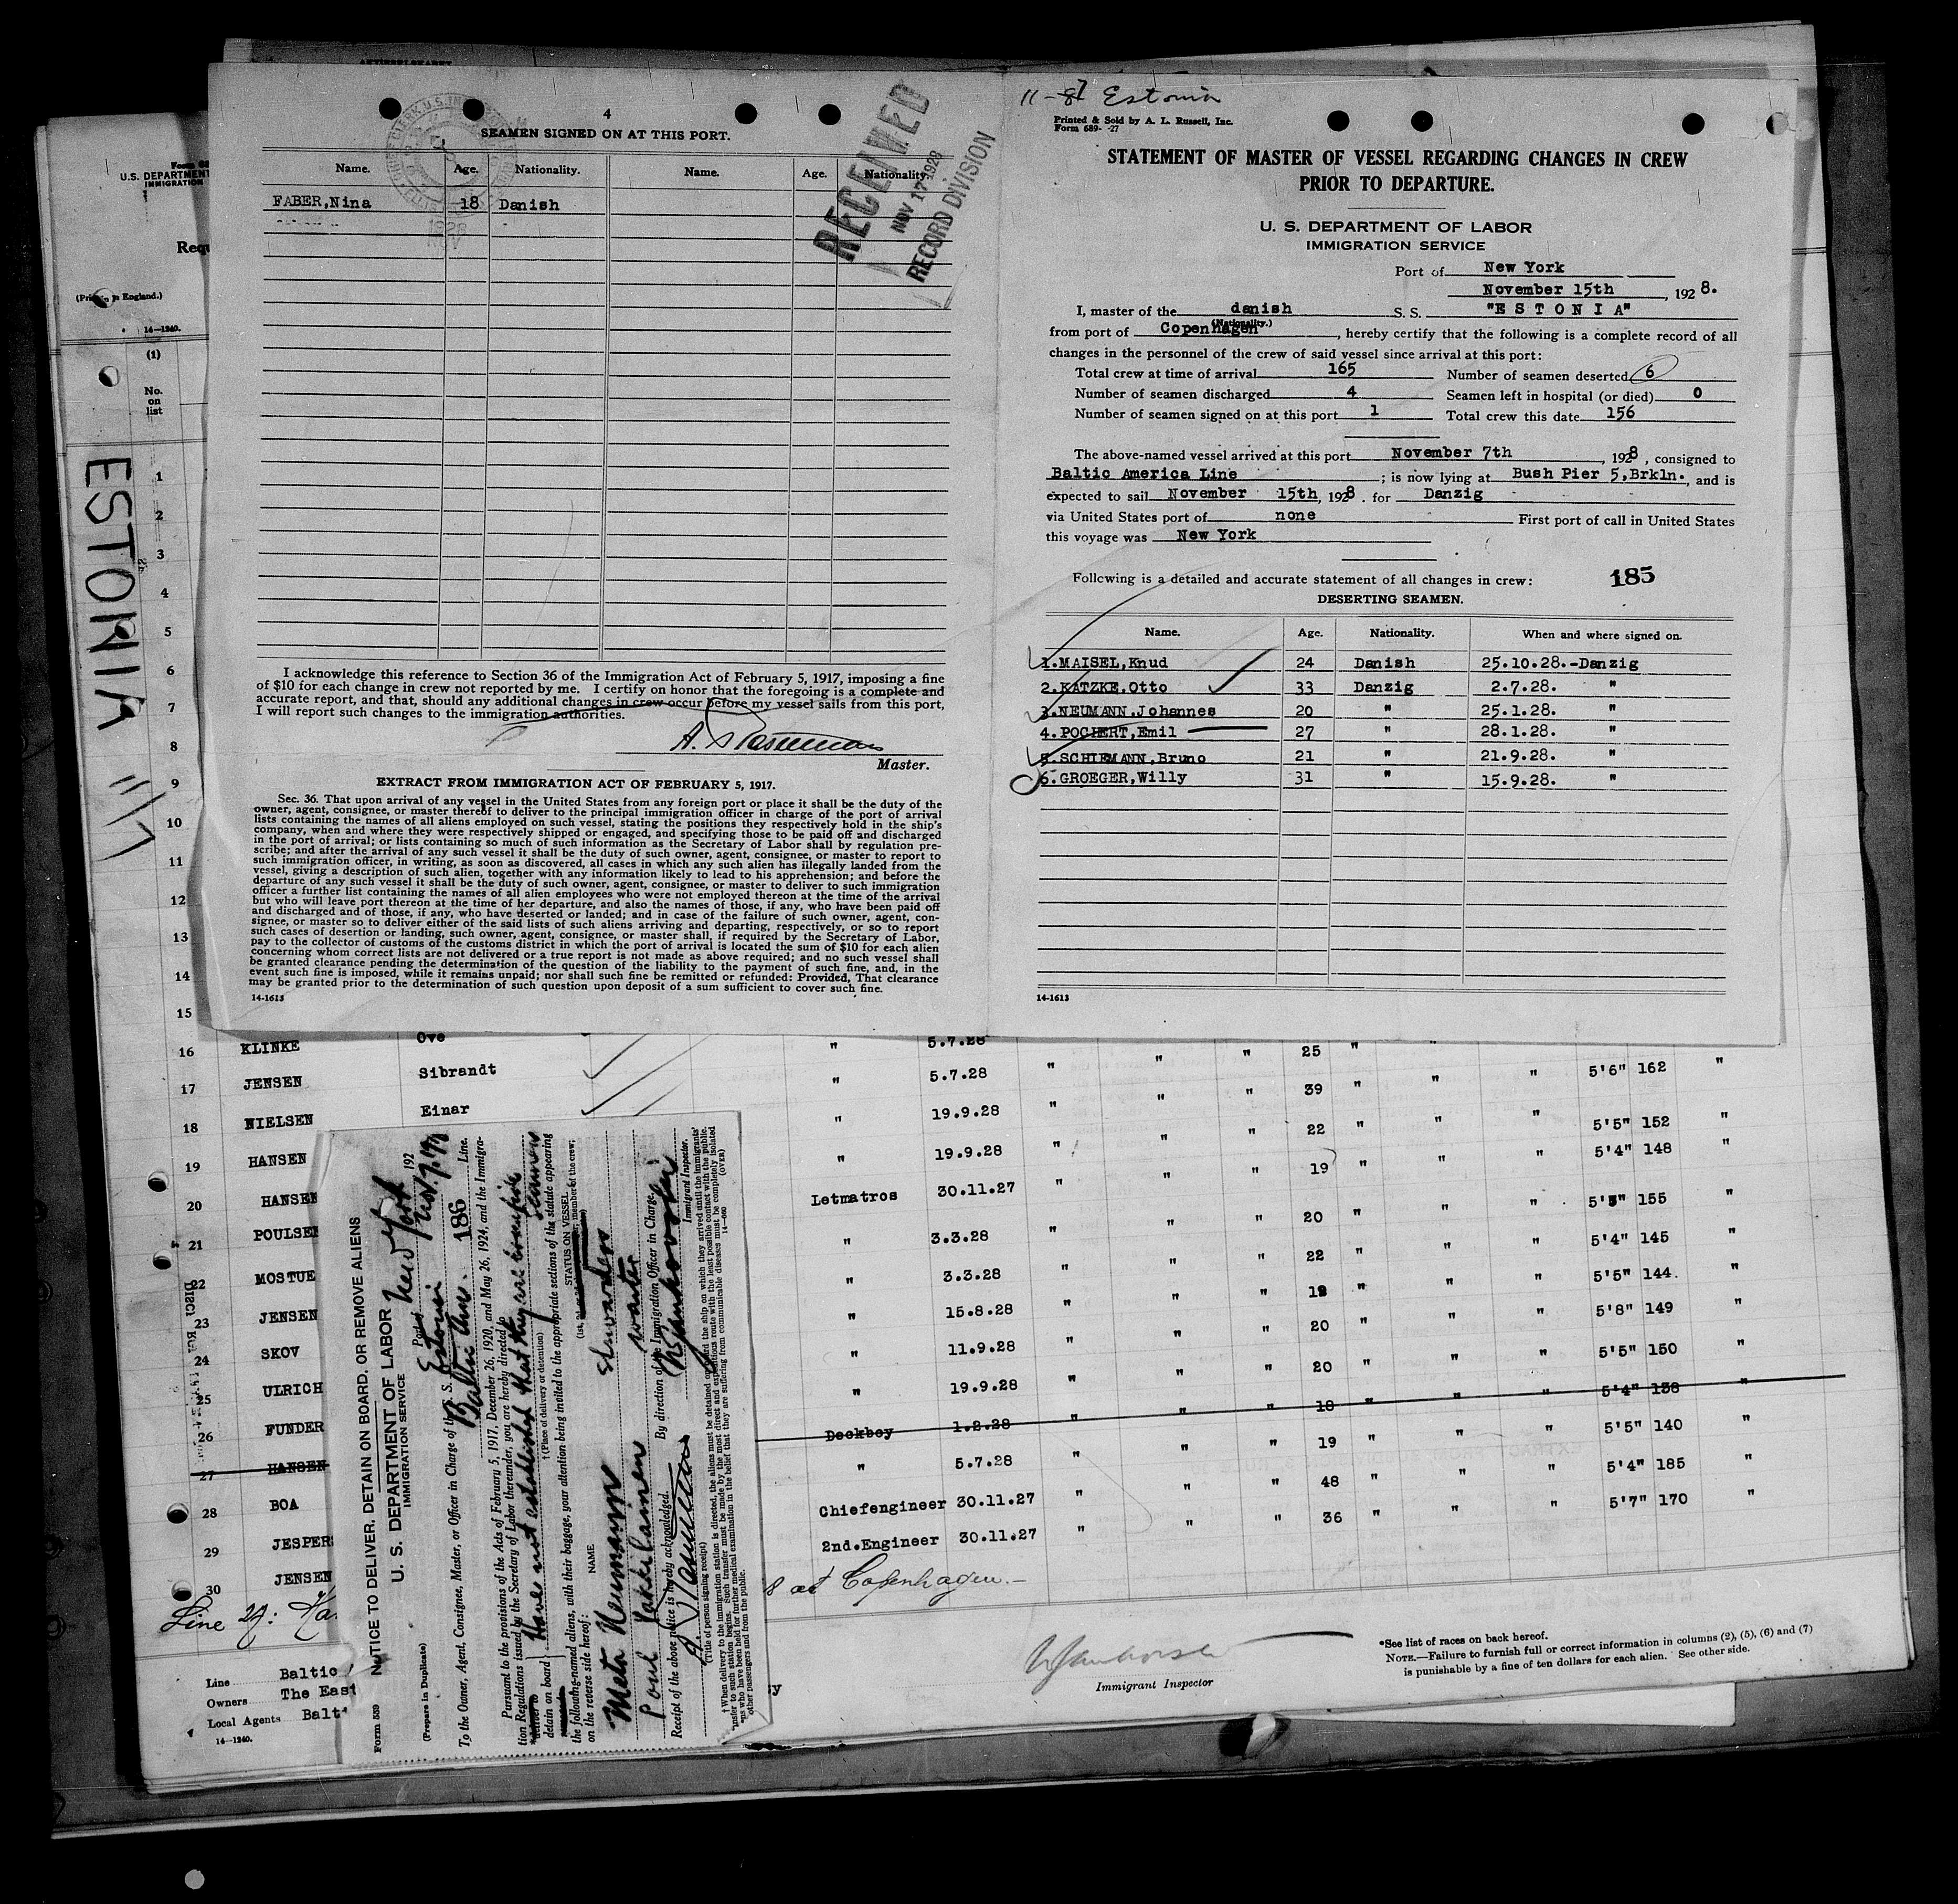 4
SEAMEN SIGNED ON AT THIS PORT.
Name. Age. Nationality. Name. Age. Nationality.
FABER,Nina 18 Danish
RECEIVED
NOV 17 1928
RECORD DIVISION
I acknowledge this reference to Section 36 of the Immigration Act of February 5, 1917, imposing a fine
of $10 for each change in crew not reported by me. I certify on honor that the foregoing is a complete and
accurate report, and that, should any additional changes in crew occur before my vessel sails from this port,
I will report such changes to the immigration authorities.
Master.
EXTRACT FROM IMMIGRATION ACT OF FEBRUARY 5, 1917.
Sec. 36. That upon arrival of any vessel in the United States from any foreign port or place it shall be the duty of the
owner, agent, consignee, or master thereof to deliver to the principal immigration officer in charge of the port of arrival
lists containing the names of all aliens employed on such vessel, stating the positions they respectively hold in the ship's
company, when and where they were respectively shipped or engaged, and specifying those to be paid off and discharged
in the port of arrival; or lists containing so much of such information as the Secretary of Labor shall by regulation pre-
scribe; and after the arrival of any such vessel it shall be the duty of such owner, agent, consignee, or master to report to
such immigration officer, in writing, as soon as discovered, all cases in which any such alien has illegally landed from the
vessel, giving a description of such alien, together with any information likely to lead to his apprehension; and before the
departure of any such vessel it shall be the duty of such owner, agent, consignee, or master to deliver to such immigration
officer a further list containing the names of all alien employees who were not employed thereon at the time of the arrival
but who will leave port thereon at the time of her departure, and also the names of those, if any, who have been paid off
and discharged and of those, if any, who have deserted or landed; and in case of the failure of such owner, agent, con-
signee, or master so to deliver either of the said lists of such aliens arriving and departing, respectively, or so to report
such cases of desertion or landing, such owner, agent, consignee, or master shall, if required by the Secretary of Labor,
pay to the collector of customs of the customs district in which the port of arrival is located the sum of $10 for each alien
concerning whom correct lists are not delivered or a true report is not made as above required; and no such vessel shall
be granted clearance pending the determination of the question of the liability to the payment of such fine, and, in the
event such fine is imposed, while it remains unpaid; nor shall such fine be remitted or refunded: Provided, That clearance
may be granted prior to the determination of such question upon deposit of a sum sufficient to cover such fine.
14-1613
Estonia
Printed & Sold by A. L. Russell, Inc.
Form 689- -27
STATEMENT OF MASTER OF VESSEL REGARDING CHANGES IN CREW
PRIOR TO DEPARTURE.
U. S. DEPARTMENT OF LABOR
IMMIGRATION SERVICE
Port of New York
November 15th, 1928.
I, master of the danish S. S. "E S T O N I A"
(Nationality.)
from port of Copenhagen, hereby certify that the following is a complete record of all
changes in the personnel of the crew of said vessel since arrival at this port:
Total crew at time of arrival 165 Number of seamen deserted 6
Number of seamen discharged 4 Seamen left in hospital (or died) 0
Number of seamen signed on at this port 1 Total crew this date 156
The above-named vessel arrived at this port November 7th, 1928, consigned to
Baltic America Line; is now lying at Bush Pier 5,Brkln., and is
expected to sail November 15th, 1928. for Danzig
via United States port of none First port of call in United States
this voyage was New York
Following is a detailed and accurate statement of all changes in crew: 185
DESERTING SEAMEN.
Name. Age. Nationality. When and where signed on.
1.MAISEL,Knud 24 Danish 25.10.28.-Danzig
2.KATZKE,Otto 33 Danzig 2.7.28. "
3.NEUMANN,Johannes 20 " 25.1.28. "
4.POCHERT,Emil 27 " 28.1.28. "
5.SCHIEMANN,Bruno 21 " 21.9.28. "
6.GROEGER,Willy 31 " 15.9.28. "
14-1613
U. S. DEPARTMENT
IMMIGRATION
14-1240.
(1)
No.
on
list
ESTONIA 11/7
1
2
3
4
5
6
7
8
9
10
11
12
13
14
15
16 KLINKE Ove " 5.7.28 " " " 25 " "
17 JENSEN Sibrandt " 5.7.28 " " " 39 " " " 5'6" 162 "
18 NIELSEN Einar " 19.9.28 " " " 22 " " " 5'5" 152 "
19 HANSEN " 19.9.28 " " " 19 " " " 5'4" 148 "
20 HANSEN Letmatros 30.11.27 " " " 20 " " " 5'5" 155 "
21 POULSEN " 3.3.28 " " " 22 " " " 5'4" 145 "
22 MOSTUE " 3.3.28 " " " 19 " " " 5'5" 144 "
23 JENSEN " 15.8.28 " " " 20 " " " 5'8" 149 "
24 SKOV " 11.9.28 " " " 20 " " " 5'5" 150 "
25 ULRICH " 19.9.28
26 FUNDER Deckboy 1.2.28 " " " 18 " " " 5'4" 138 "
27 HANSEN " 5.7.28 " " " 19 " " " 5'5" 140 "
28 BOA Chiefengineer 30.11.27 " " " 48 " " " 5'4" 185 "
29 JESPER 2nd.Engineer 30.11.27 " " " 36 " " " 5'7" 170 "
30 JENSEN
at Copenhagen.
Line Baltic
Owners The East
Local Agents Balt
14-1240.
Immigrant Inspector
*See list of races on back hereof.
NOTE.—Failure to furnish full or correct information in columns (2), (5), (6) and (7)
is punishable by a fine of ten dollars for each alien. See other side.
Form 559
(Prepare in Duplicate)
NOTICE TO DELIVER, DETAIN ON BOARD, OR REMOVE ALIENS
U. S. DEPARTMENT OF LABOR
IMMIGRATION SERVICE
Port of New York
Nov. 7, 192
To the Owner, Agent, Consignee, Master, or Officer in Charge of the S. S. Estonia
Baltic Am. Line. 186
Pursuant to the provisions of the Acts of February 5, 1917, December 26, 1920, and May 26, 1924, and the Immigra-
tion Regulations issued by the Secretary of Labor thereunder, you are hereby directed to
detain on board Have not established that they are bonafide seamen
† (Place of delivery or detention)
the following-named aliens, with their baggage, your attention being invited to the appropriate sections of the statute appearing
on the reverse side hereof:
NAME STATUS ON VESSEL
Meta Neumann Stewardess
Poul Pakkilainen waiter
By direction of the Immigration Officer in Charge.
Receipt of the above notice is hereby acknowledged.
Immigrant Inspector.
(Title of person signing receipt)
(OVER)